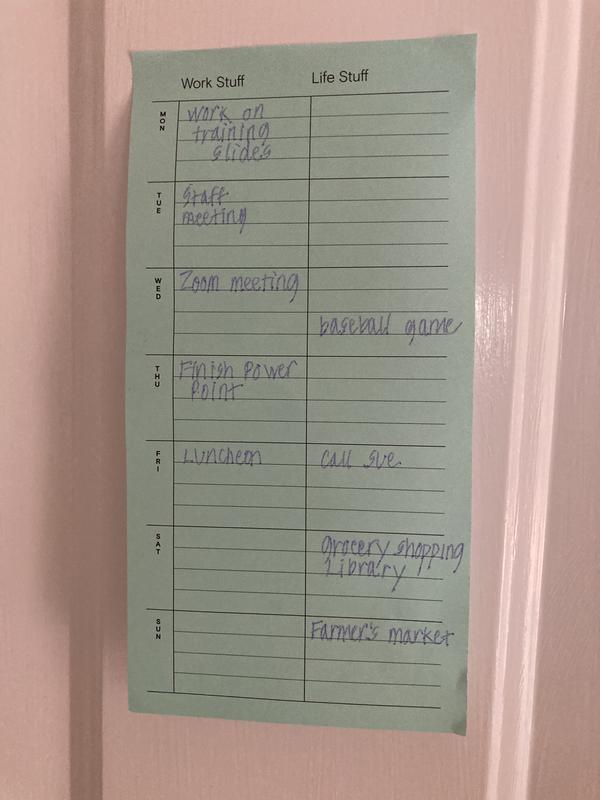 Work Stuff Life Stuff
MON
Work on
training
slides
TUE
Staff
meeting
WED
Zoom meeting
baseball game
THU
Finish Power
Point
FRI
Luncheon
call sue
SAT
grocery shopping
Library
SUN
Farmer's market